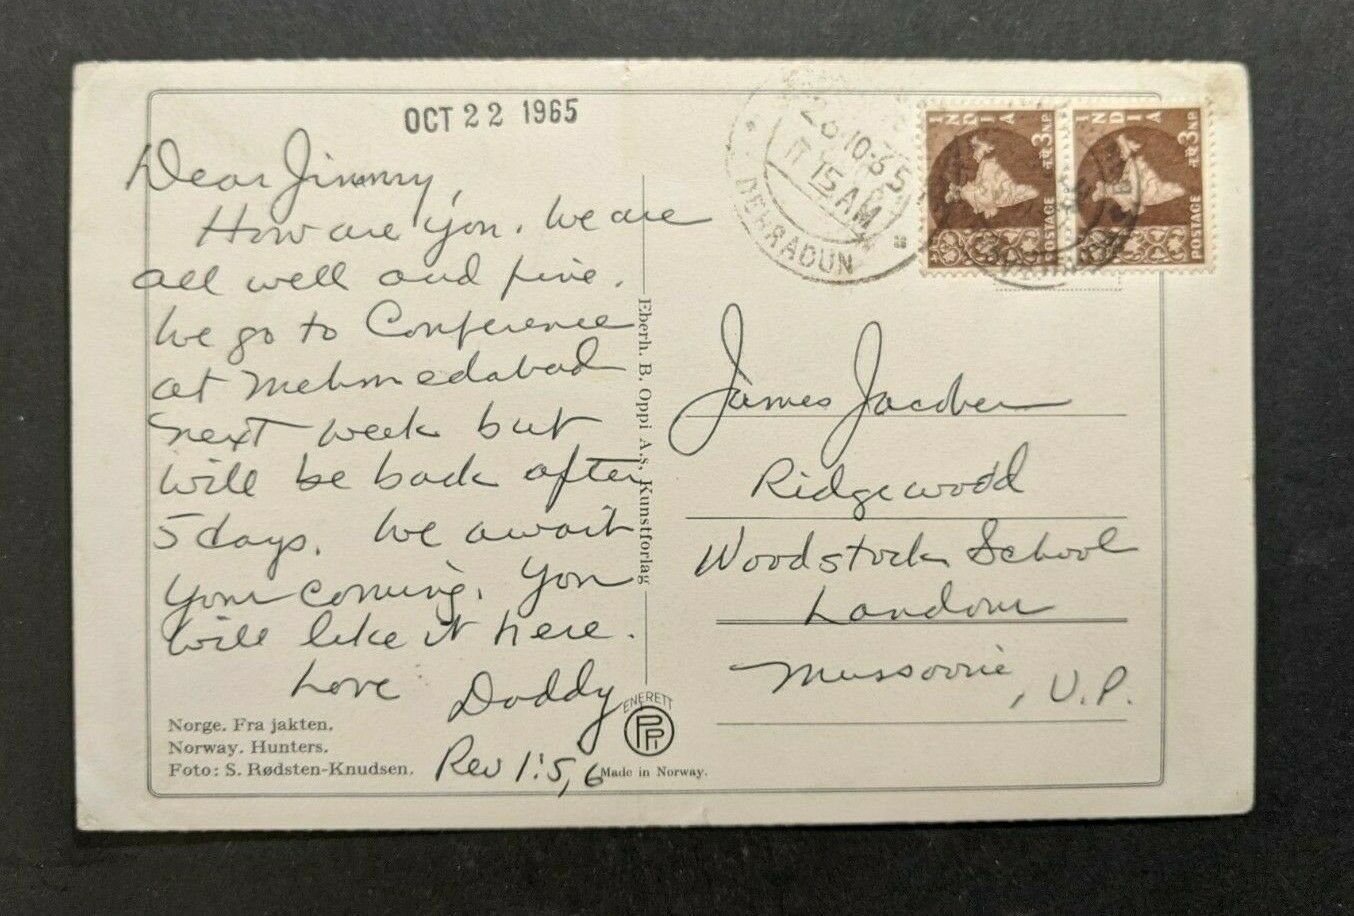 OCT 22 1965
Dear Jimmy,
How are you. We are
all well and fine.
We go to Conference
at Mehmedabad
next week but
will be back after
5 days. We await
your coming. You
will like it here.
Love Daddy
Rev 1:5,6
Norge. Fra jakten.
Norway. Hunters.
Foto: S. Rødsten-Knudsen.
Eberh. B. Oppi A.s, Kunstforlag
ENERETT
PP
Made in Norway.
DEHRADUN
26.10.65
11.15AM
INDIA
3 NP.
3 नए पैसे
POSTAGE
INDIA
3 NP.
3 नए पैसे
POSTAGE
James Jacober
Ridgewood
Woodstock School
Landour
Mussoorie, U.P.